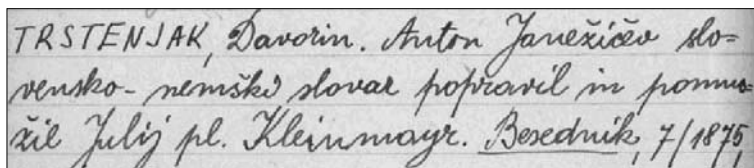 TRSTENJAK, Davorin. Anton Janežičev slo=
vensko-nemški slovar popravil in pomno=
žil Julij pl. Kleinmayr. Besednik, 7/1875,